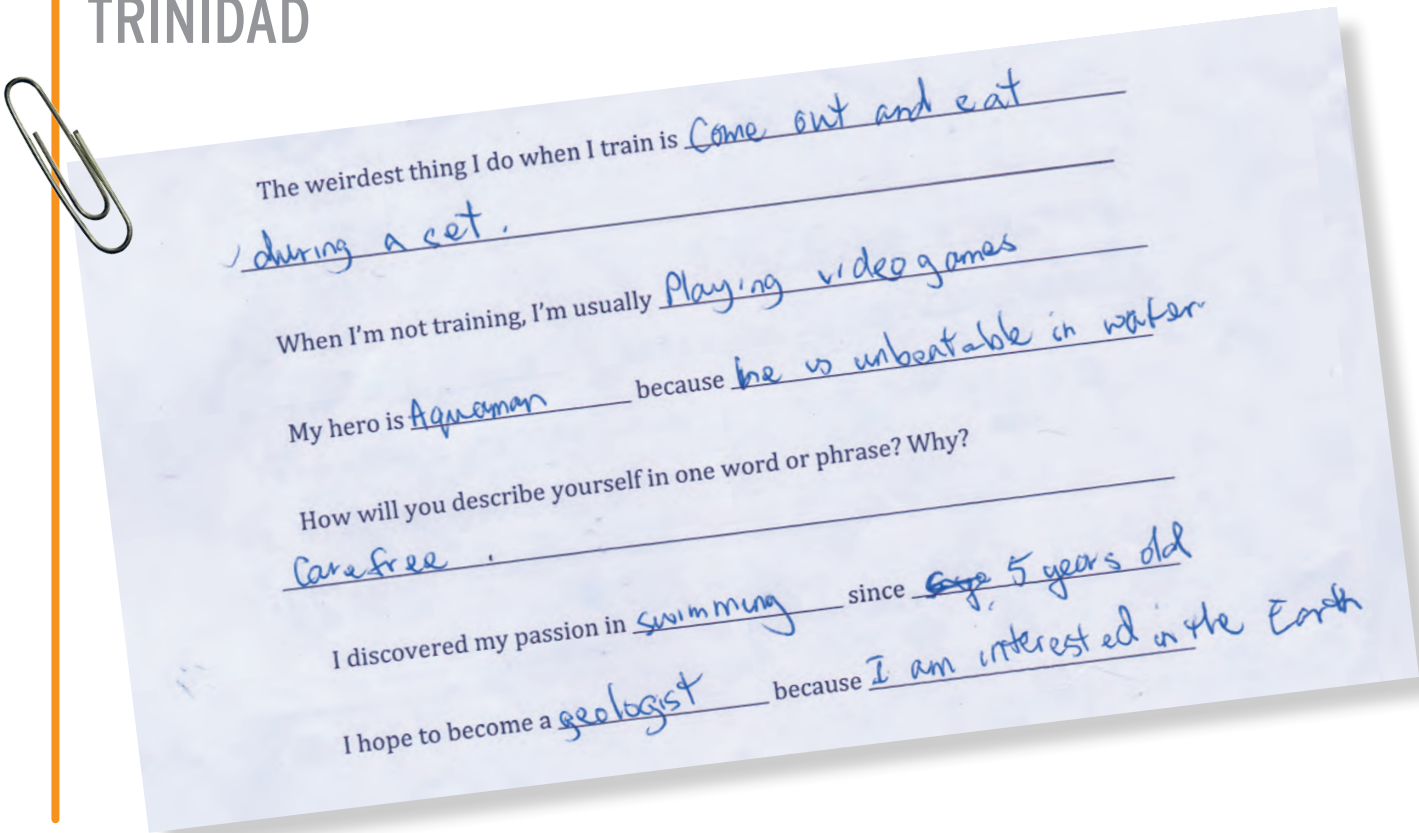 TRINIDAD
The weirdest thing I do when I train is Come out and eat
during a set.
When I'm not training, I'm usually Playing videogames
My hero is Aquaman because he is unbeatable in water.
How will you describe yourself in one word or phrase? Why?
Carefree.
I discovered my passion in swimming since 5 years old
I hope to become a geologist because I am interested in the Earth